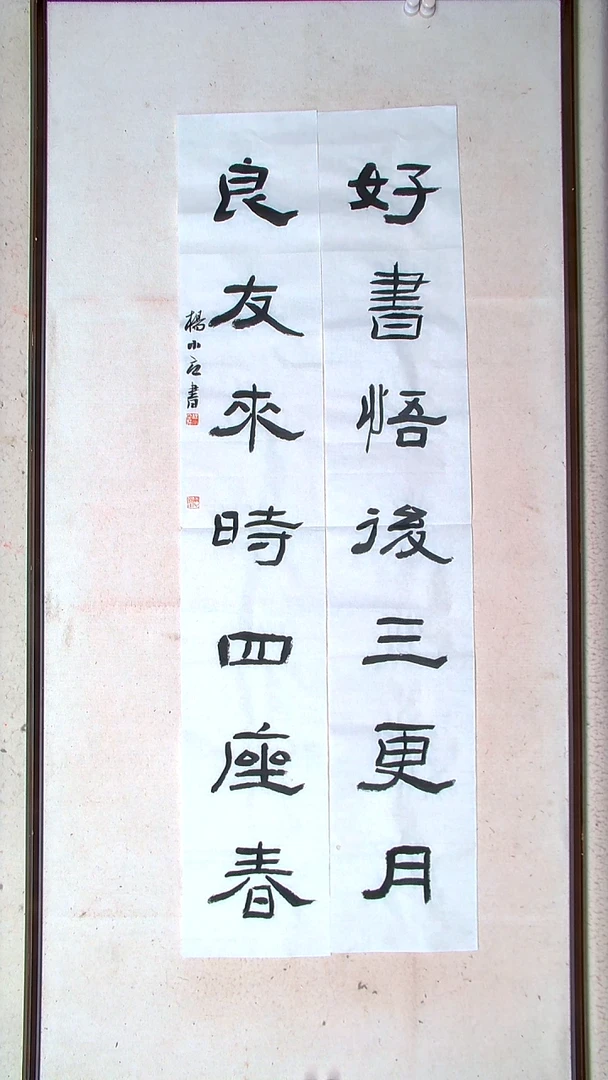 好書悟後三更月
良友來時四座春
楊小 書